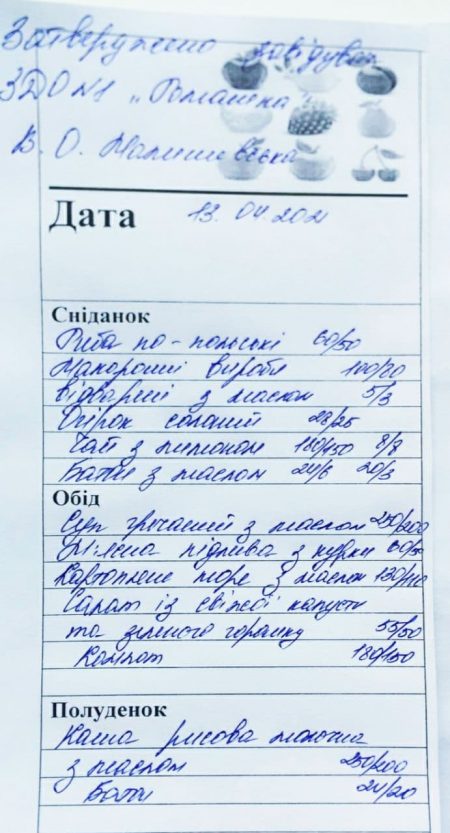 Затверджено завідувач
ЗДО №1 „Ромашка"
В. О. Малишевська
Дата 13.04.2021
Сніданок
Риба по-польські 60/50
Макаронні вироби 100/70
відварені з маслом 5/3
Огірок солоний 28/25
Чай з лимоном 180/150 8/8
Батон з маслом 24/6 20/3
Обід
Суп гречаний з маслом 250/200
М'ясна підлива з курки 60/50
Картопляне пюре з маслом 130/110
Салат із свіжої капусти
та зеленого горошку 55/50
Компот 180/150
Полуденок
Каша рисова молочна
з маслом 250/200
Батон 24/20